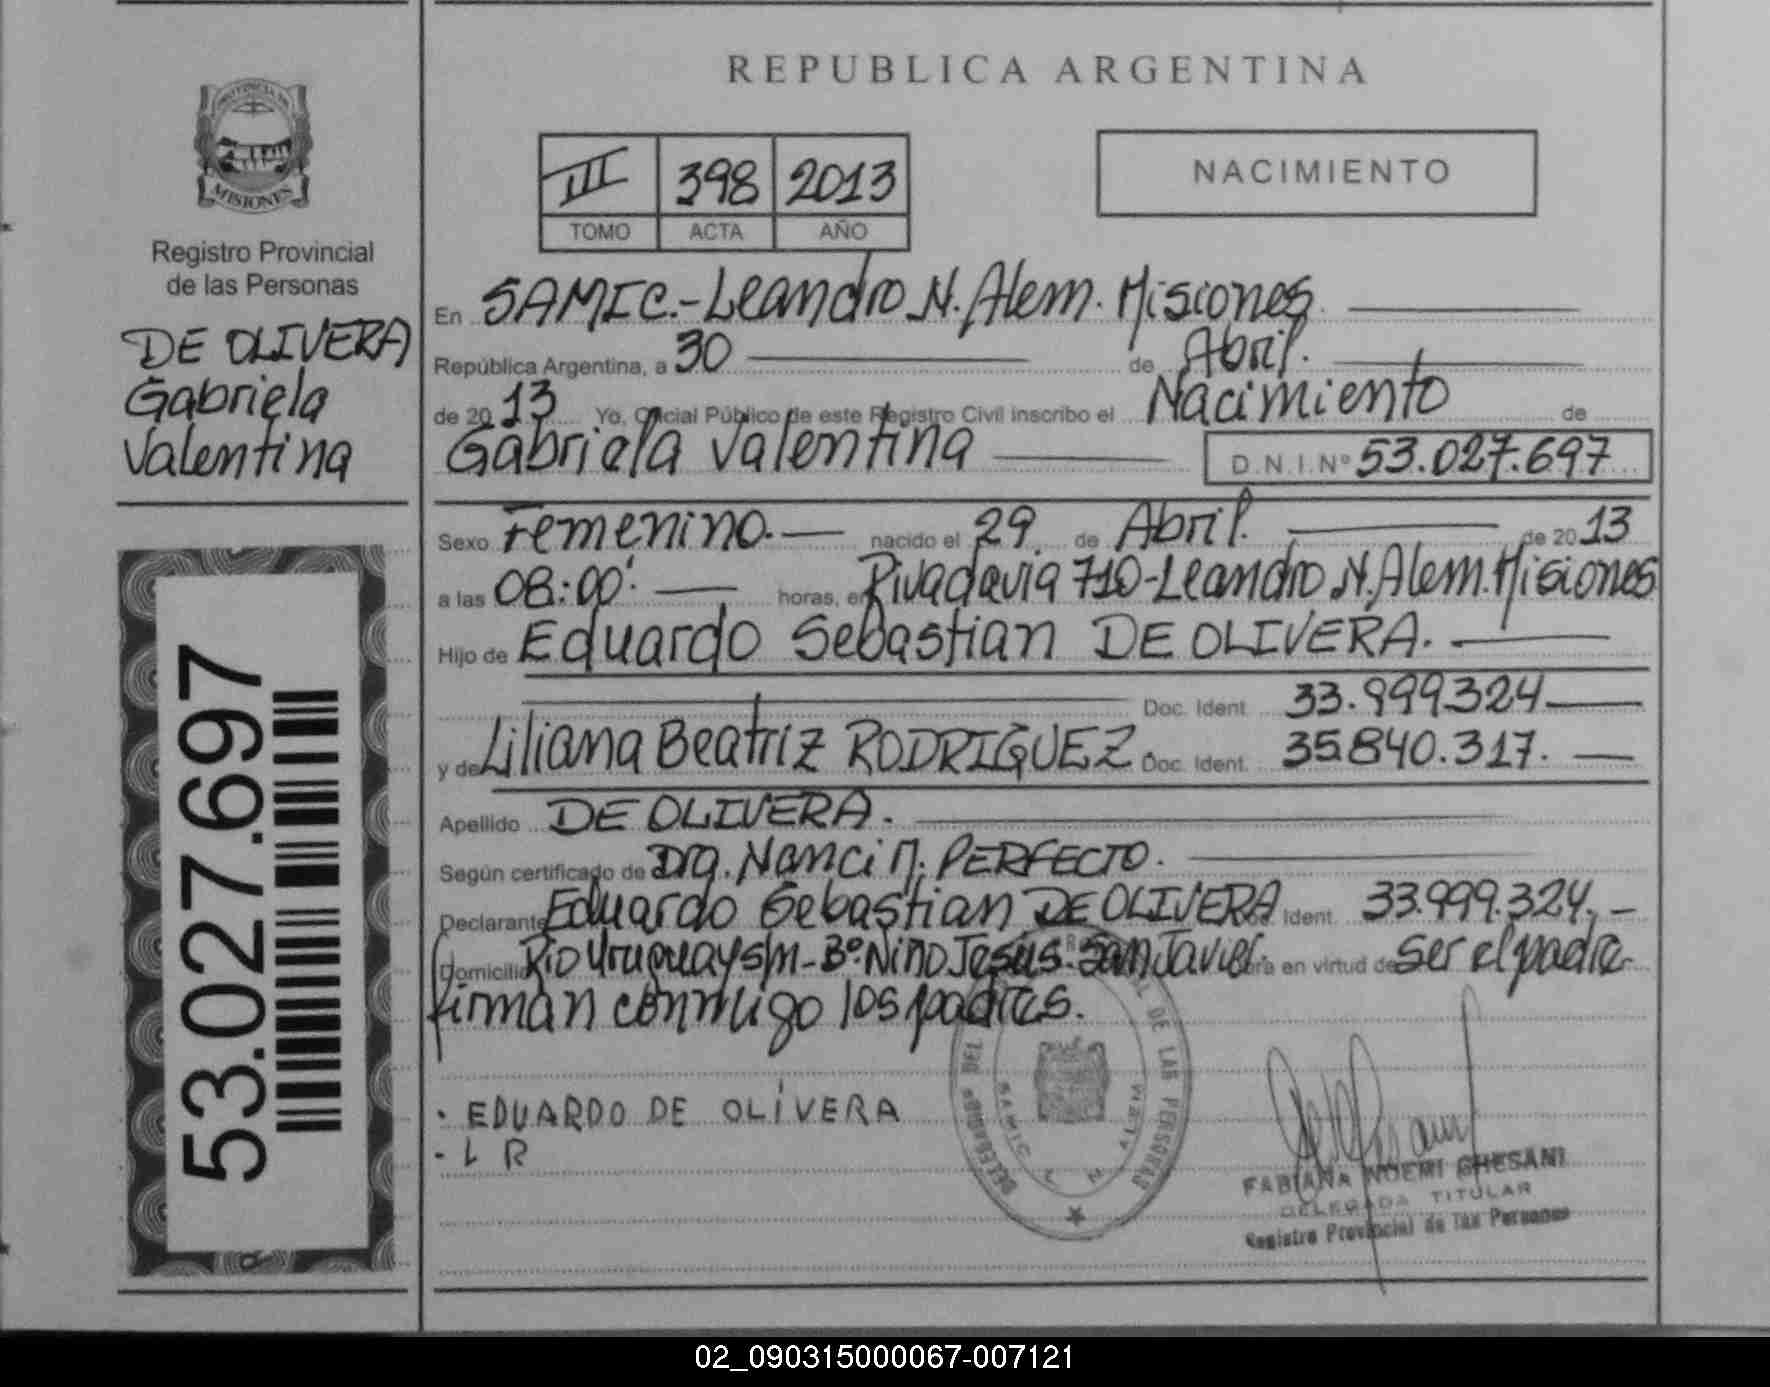 REPUBLICA ARGENTINA
PROVINCIA DE
MISIONES
Registro Provincial
de las Personas
DE OLIVERA
Gabriela
Valentina
53.027.697
III 398 2013
TOMO ACTA AÑO
NACIMIENTO
En SAMIC.-Leandro N. Alem. Misiones.
República Argentina, a 30 de Abril.
de 2013 Yo, Oficial Público de este Registro Civil inscribo el Nacimiento de
Gabriela Valentina D.N.I.Nº 53.027.697
Sexo Femenino. nacido el 29 de Abril. de 2013
a las 08:00'. horas, en Rivadavia 710-Leandro N. Alem. Misiones
Hijo de Eduardo Sebastian DE OLIVERA.
Doc. Ident. 33.999.324
y de Liliana Beatriz RODRIGUEZ. Doc. Ident. 35.840.317.
Apellido DE OLIVERA.
Según certificado de Dra. Nanci M. PERFECTO.
Declarante Eduardo Sebastian DE OLIVERA Ident. 33.999.324.
Domicilio Rio Uruguay s/n-Bº.Niño Jesus. San Javier. en virtud de ser el padre
firman conmigo los padres.
. EDUARDO DE OLIVERA
- L R
DE LAS PERSONAS
SAMIC L N ALEM
FABIANA NOEMI GHESANI
DELEGADA TITULAR
Registro Provincial de las Personas
02_090315000067-007121